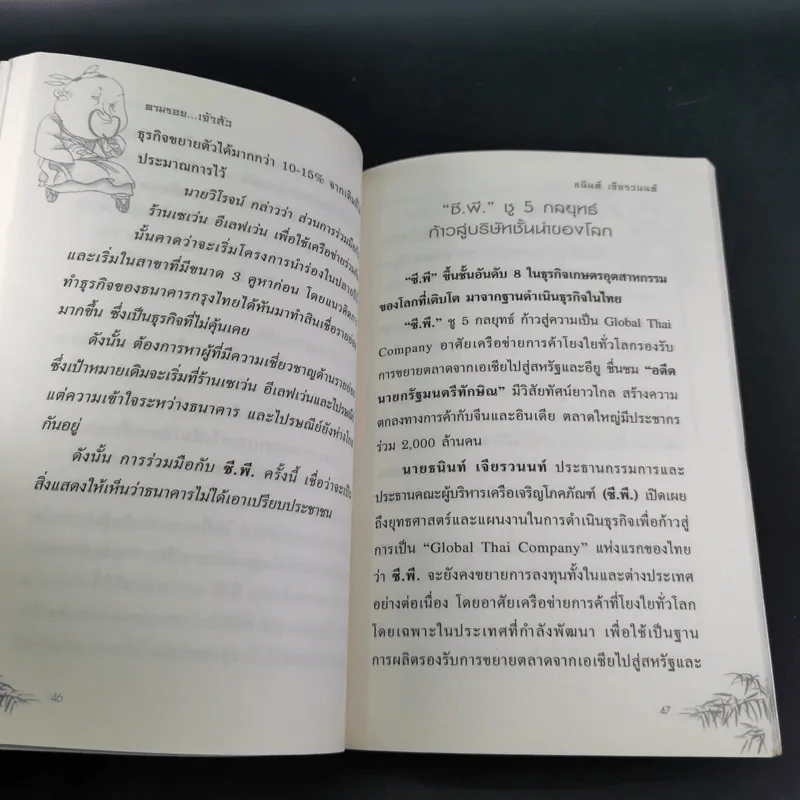 ตามรอย...เจ้าสัว
ธุรกิจขยายตัวได้มากกว่า 10-15% จากเดิมที่
ประมาณการไว้
นายวิโรจน์ กล่าวว่า ส่วนการร่วมมือกับ
ร้านเซเว่น อีเลฟเว่น เพื่อใช้เครือข่ายร่วมกัน
นั้นคาดว่าจะเริ่มโครงการนำร่องในปลายปี
และเริ่มในสาขาที่มีขนาด 3 คูหาก่อน โดยแนวคิดการ
ทำธุรกิจของธนาคารกรุงไทยได้หันมาทำสินเชื่อรายย่อย
มากขึ้น ซึ่งเป็นธุรกิจที่ไม่คุ้นเคย
ดังนั้น ต้องการหาผู้ที่มีความเชี่ยวชาญด้านรายย่อย
ซึ่งเป้าหมายเดิมจะเริ่มที่ร้านเซเว่น อีเลฟเว่นและไปรษณีย์
แต่ความเข้าใจระหว่างธนาคาร และไปรษณีย์ยังห่างไกล
กันอยู่
ดังนั้น การร่วมมือกับ ซี.พี. ครั้งนี้ เชื่อว่าจะเป็น
สิ่งแสดงให้เห็นว่าธนาคารไม่ได้เอาเปรียบประชาชน
46
ธนินท์ เจียรวนนท์
"ซี.พี." ชู 5 กลยุทธ์
ก้าวสู่บริษัทชั้นนำของโลก
"ซี.พี" ขึ้นชั้นอันดับ 8 ในธุรกิจเกษตรอุตสาหกรรม
ของโลกที่เติบโต มาจากฐานดำเนินธุรกิจในไทย
"ซี.พี." ชู 5 กลยุทธ์ ก้าวสู่ความเป็น Global Thai
Company อาศัยเครือข่ายการค้าโยงใยทั่วโลกรองรับ
การขยายตลาดจากเอเชียไปสู่สหรัฐและอียู ชื่นชม "อดีต
นายกรัฐมนตรีทักษิณ" มีวิสัยทัศน์ยาวไกล สร้างความ
ตกลงทางการค้ากับจีนและอินเดีย ตลาดใหญ่มีประชากร
ร่วม 2,000 ล้านคน
นายธนินท์ เจียรวนนท์ ประธานกรรมการและ
ประธานคณะผู้บริหารเครือเจริญโภคภัณฑ์ (ซี.พี.) เปิดเผย
ถึงยุทธศาสตร์และแผนงานในการดำเนินธุรกิจเพื่อก้าวสู่
การเป็น "Global Thai Company" แห่งแรกของไทย
ว่า ซี.พี. จะยังคงขยายการลงทุนทั้งในและต่างประเทศ
อย่างต่อเนื่อง โดยอาศัยเครือข่ายการค้าที่โยงใยทั่วโลก
โดยเฉพาะในประเทศที่กำลังพัฒนา เพื่อใช้เป็นฐาน
การผลิตรองรับการขยายตลาดจากเอเชียไปสู่สหรัฐและ
47